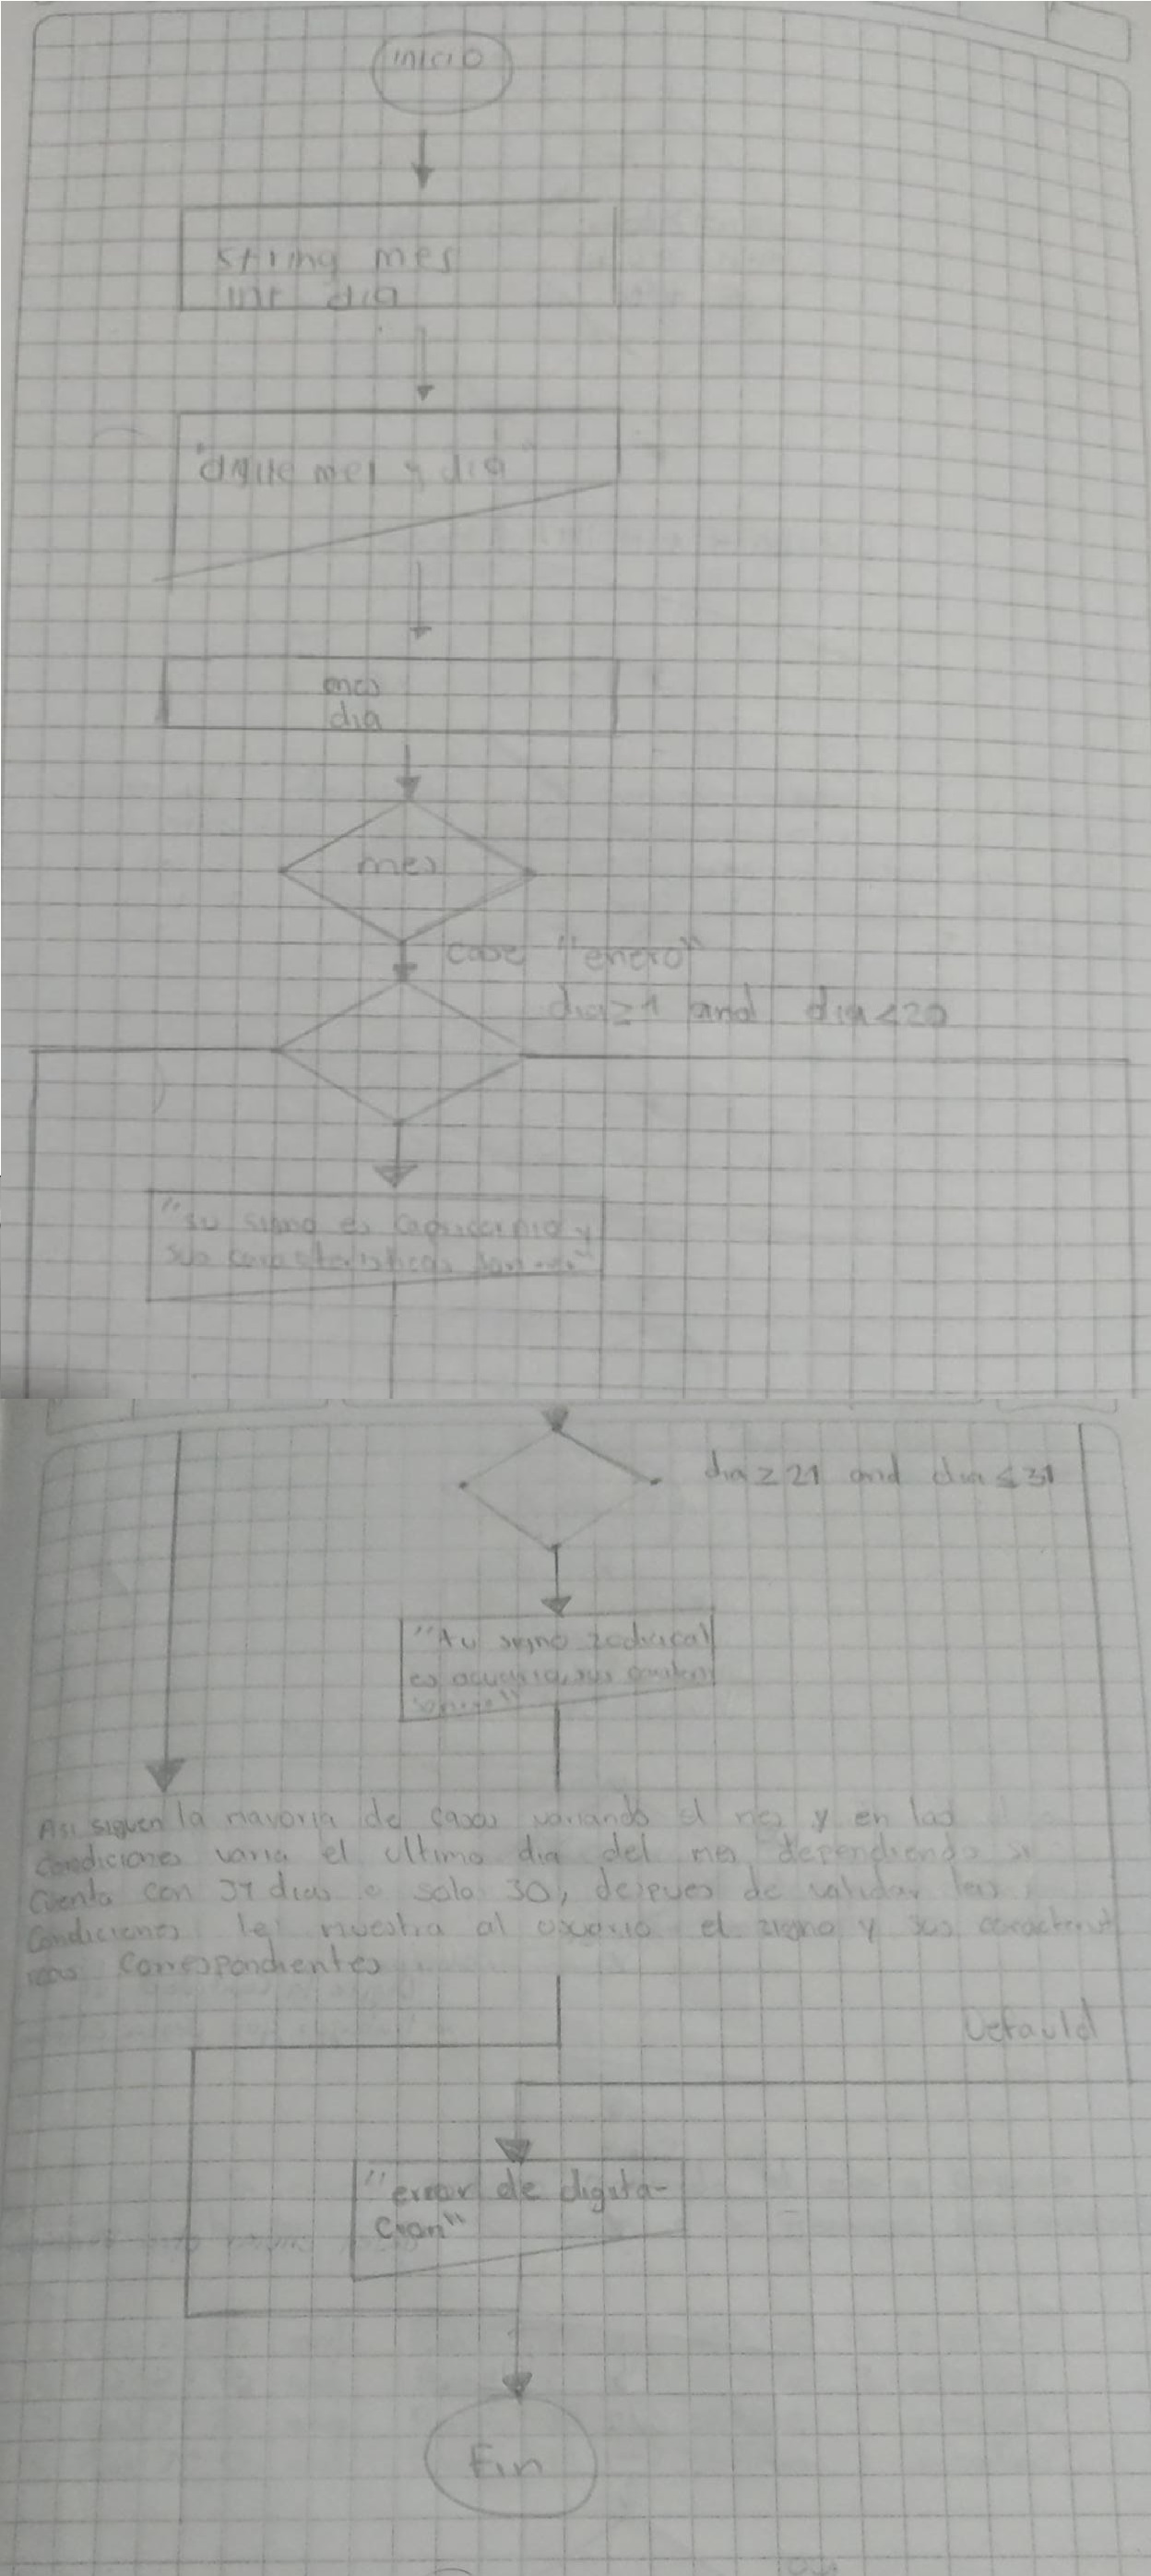 inicio
string mes
int dia
"digite mes y dia"
mes
dia
mes
case "enero"
dia≥1 and dia<20
"su signo es capricornio y
sus caracteristicas son..."
dia≥21 and dia≤31
"tu signo zodiacal
es acuario, sus
Asi siguen la mayoria de casos variando el mes y en las
condiciones varia el ultimo dia del mes dependiendo si
cuenta con 31 dias o solo 30, despues de validar las
condiciones le muestra al usuario el signo y sus caracterist
icas correspondientes
Defauld
"error de digita-
cion"
Fin